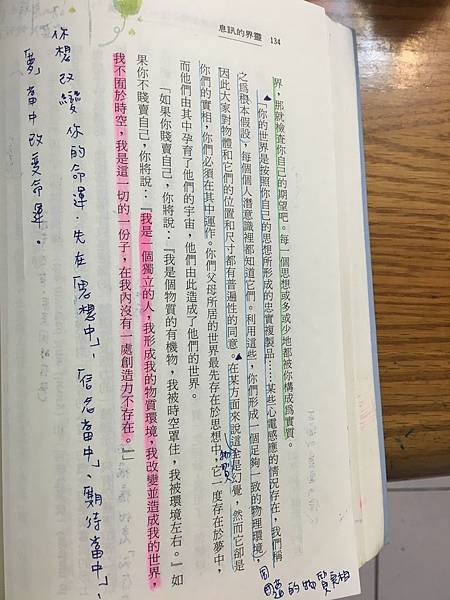 靈界的訊息
134
界，那就檢查你自己的期望吧。每一個思想或多或少地都被你構成為實質。
「你的世界是按照你自己的思想所形成的忠實複製品……某些心電感應的情況存在，我們稱
之為根本假設，每個個人潛意識裡都知道它們。利用這些，你們形成一個足夠一致的物理環境，
因此大家對物體和它們的位置和尺寸都有普遍性的同意。在某方面來說這全是幻覺，然而它卻是
你們的實相，你們必須在其中運作。你們父母所居的世界最先存在於思想中，它一度存在於夢中，
而他們由其中孕育了他們的宇宙，他們由此造成了他們的世界。
「如果你賤賣自己，你將說：『我是個物質的有機物，我被時空罩住，我被環境左右。』如
果你不賤賣自己，你將說：『我是一個獨立的人，我形成我的物質環境，我改變並造成我的世界，
我不囿於時空，我是這一切的一份子，在我內沒有一處創造力不存在。』」
物質
的物質實相
你想改變你的命運．先在「思想中」、「信念當中」、「期待當中」、
「夢」當中改變命運。